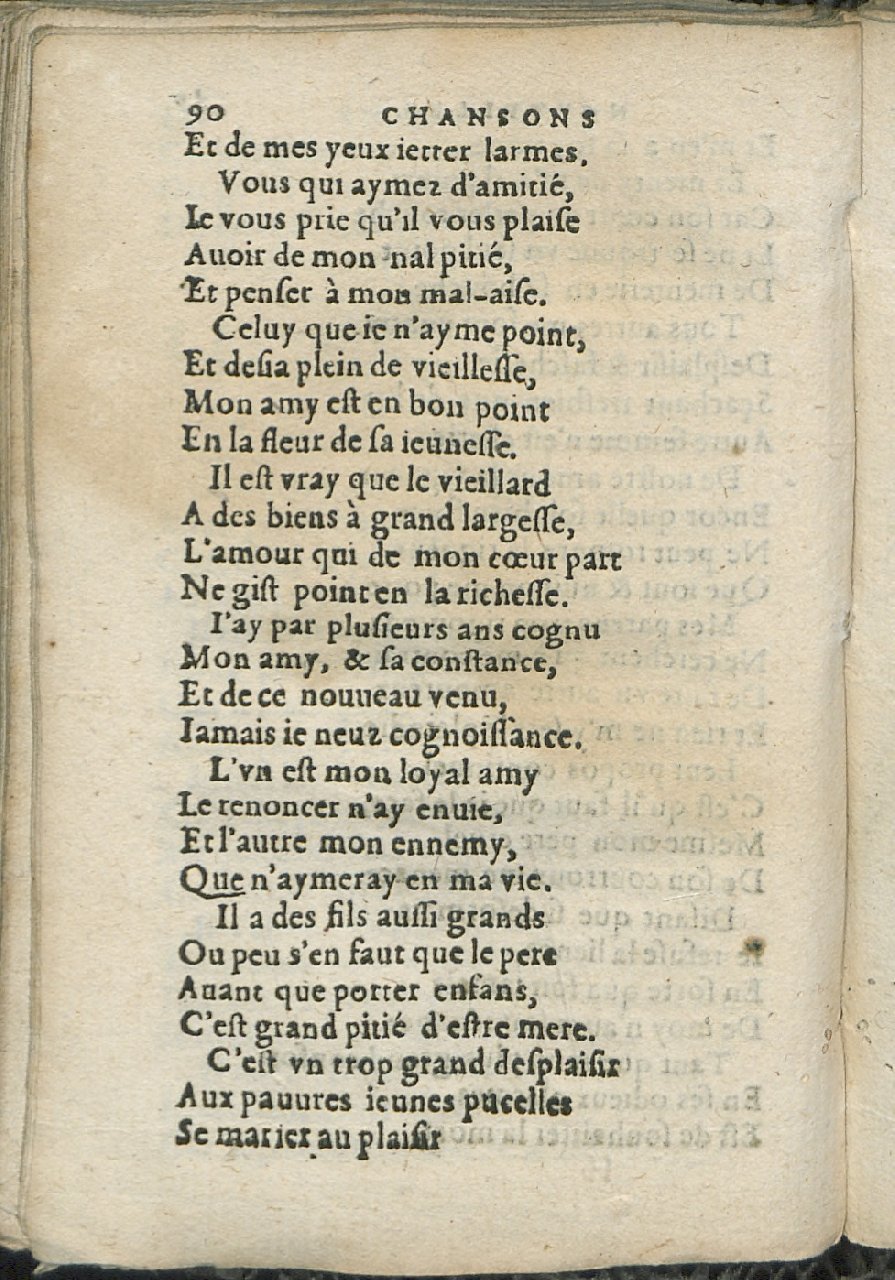 90 CHANSONS
Et de mes yeux ietter larmes.
Vous qui aymez d'amitié,
Ie vous prie qu'il vous plaiſe
Auoir de mon mal pitié,
Et penſer à mon mal-aiſe.
Celuy que ie n'ayme point,
Et deſia plein de vieilleſſe,
Mon amy eſt en bon point
En la fleur de ſa ieuneſſe.
Il eſt vray que le vieillard
A des biens à grand largeſſe,
L'amour qui de mon cœur part
Ne giſt point en la richeſſe.
I'ay par pluſieurs ans cognu
Mon amy, & ſa conſtance,
Et de ce nouueau venu,
Iamais ie neuz cognoiſſance.
L'vn eſt mon loyal amy
Le renoncer n'ay enuie,
Et l'autre mon ennemy,
Que n'aymeray en ma vie.
Il a des fils auſſi grands
Ou peu s'en faut que le pere
Auant que porter enfans,
C'eſt grand pitié d'eſtre mere.
C'eſt vn trop grand deſplaiſir
Aux pauures ieunes pucelles
Se marier au plaiſir